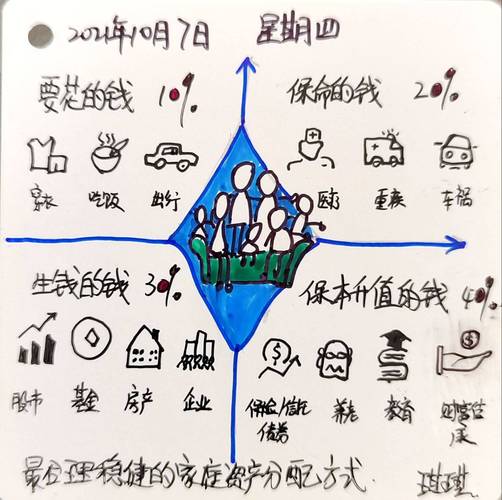 2021年10月7日 星期四
要花的钱 10%
保命的钱 20%
穿衣 吃饭 出行
医药 重疾 车祸
生钱的钱 30%
保本升值的钱 40%
股市 基金 房产 企业
保险/信托 养老 教育 财富传
债券 承
最合理稳健的家庭资产分配方式.
琪琪